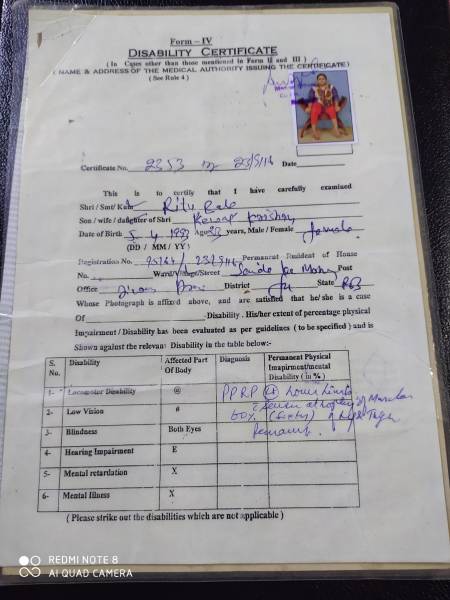 Form – IV
DISABILITY CERTIFICATE
( In Cases other than those mentioned in Form II and III )
( NAME & ADDRESS OF THE MEDICAL AUTHORITY ISSUING THE CERTIFICATE)
( See Rule 4 )
Certificate No. 2353 Date
This is to certify that I have carefully examined
Shri / Smt/ Kum Ritu Bala
Son / wife / daughter of Shri
Date of Birth 5 4 1993 Age years, Male / Female female
(DD / MM / YY)
Registration No. Permanant Resident of House
No. Ward/Village/Street Post
Office District State
Whose Photograph is affixed above, and are satisfied that he/she is a case
Of Disability. His/her extent of percentage physical
Impairment / Disability has been evaluated as per guidelines ( to be specified ) and is
Shown against the relevant Disability in the table below:-
S. No. Disability Affected Part Of Body Diagnosis Permanent Physical Impairment/mental Disability ( in % )
1- Locomotor Disability @ PPRP Lt Lower Limb
2- Low Vision # 60% (Sixty)
3- Blindness Both Eyes
4- Hearing Impairment E
5- Mental retardation X
6- Mental Illness X
( Please strike out the disabilities which are not applicable )
REDMI NOTE 8
AI QUAD CAMERA